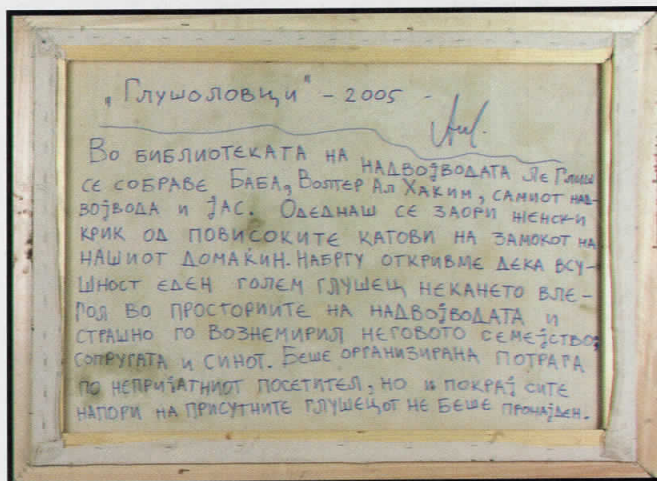 „Глушоловци" - 2005 -
Во библиотеката на надвојводата Ле
се собраве Баба, Волтер Ал Хаким, самиот над-
војвода и јас. Одеднаш се заори женски
крик од повисоките катови на замокот на
нашиот домаќин. Набргу откривме дека всу-
шност еден голем глушец некането вле-
гол во просториите на надвојводата и
страшно го вознемирил неговото семејство;
сопругата и синот. Беше организирана потрага
по непријатниот посетител, но и покрај сите
напори на присутните глушецот не беше пронајден.